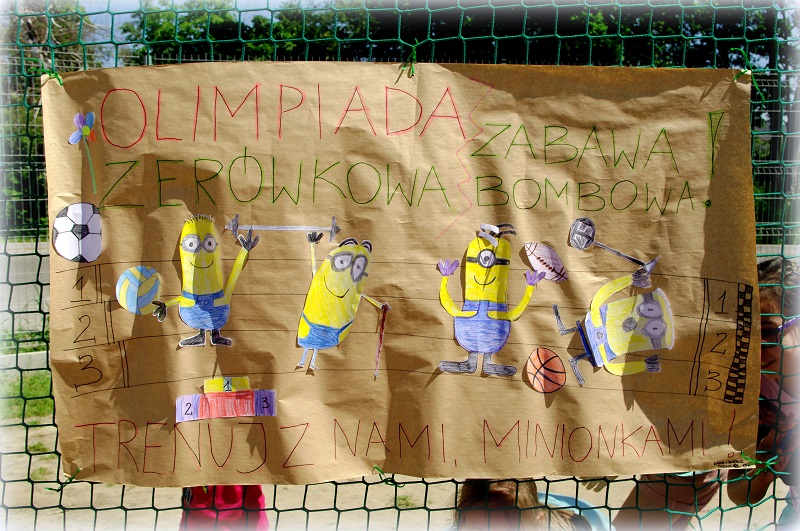 OLIMPIADA
ZERÓWKOWA
ZABAWA
BOMBOWA!
1
2
3
1
2
3
1
2
3
TRENUJ Z NAMI, MINIONKAMI!